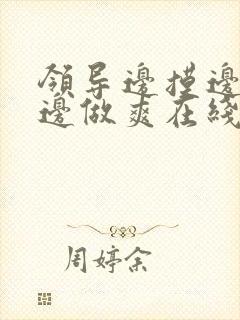 領导邊摸邊
邊做爽在綫
周婷余